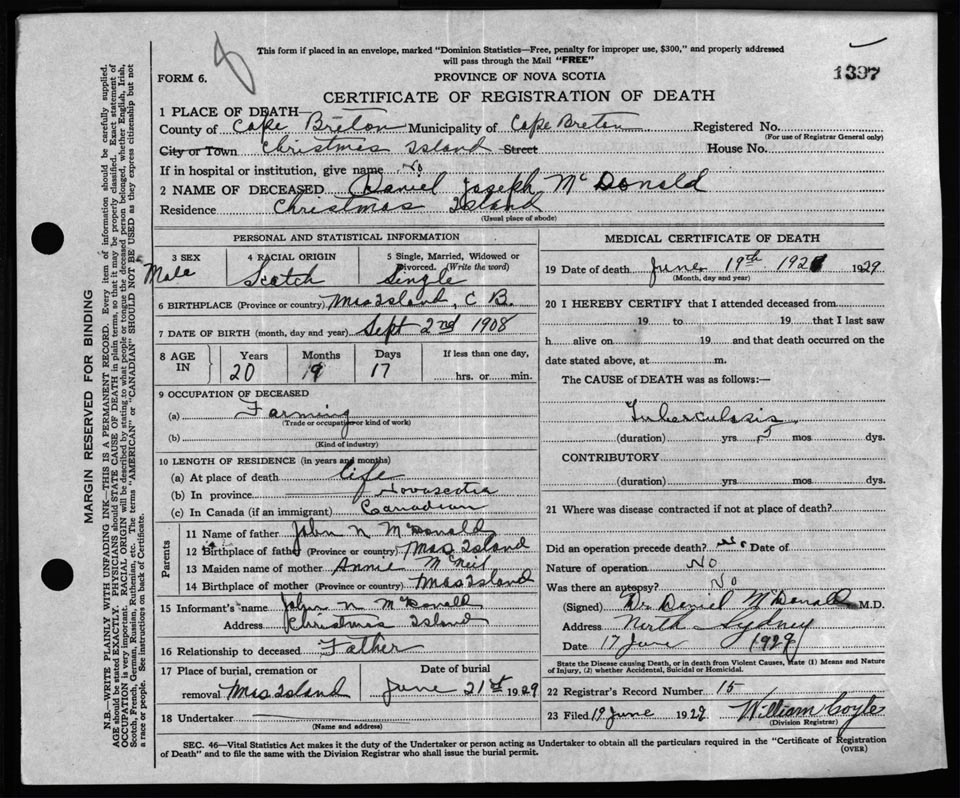 This form if placed in an envelope, marked "Dominion Statistics—Free, penalty for improper use, $300," and properly addressed
will pass through the Mail "FREE"
1397
FORM 6.
PROVINCE OF NOVA SCOTIA
CERTIFICATE OF REGISTRATION OF DEATH
1 PLACE OF DEATH
County of Cape Breton Municipality of Cape Breton Registered No.
(For use of Registrar General only)
City or Town Christmas Island Street House No.
If in hospital or institution, give name No
2 NAME OF DECEASED Daniel Joseph McDonald
Residence Christmas Island
(Usual place of abode)
PERSONAL AND STATISTICAL INFORMATION
3 SEX 4 RACIAL ORIGIN 5 Single, Married, Widowed or Divorced. (Write the word)
Male Scotch Single
6 BIRTHPLACE (Province or country) Mas Island, C B.
7 DATE OF BIRTH (month, day and year) Sept 2nd 1908
8 AGE IN Years Months Days If less than one day,
20 9 17 hrs. or min.
9 OCCUPATION OF DECEASED
(a) Farming
(Trade or occupation or kind of work)
(b)
(Kind of industry)
10 LENGTH OF RESIDENCE (in years and months)
(a) At place of death life
(b) In province Novascotia
(c) In Canada (if an immigrant) Canadian
Parents
11 Name of father John N McDonald
12 Birthplace of father (Province or country) Mas Island
13 Maiden name of mother Annie McNeil
14 Birthplace of mother (Province or country) Mas Island
15 Informant's name John N McDonald
Address Christmas Island
16 Relationship to deceased Father
17 Place of burial, cremation or removal Mas Island Date of burial June 21st 1929
18 Undertaker
(Name and address)
MEDICAL CERTIFICATE OF DEATH
19 Date of death June 19th 192 1929
(Month, day and year)
20 I HEREBY CERTIFY that I attended deceased from
19 to 19 that I last saw
h alive on 19 and that death occurred on the
date stated above, at m.
The CAUSE of DEATH was as follows:—
Tuberculosis
(duration) yrs. 5 mos dys.
CONTRIBUTORY
(duration) yrs. mos dys.
21 Where was disease contracted if not at place of death?
Did an operation precede death? No Date of
Nature of operation No
Was there an autopsy? No
(Signed) Dr Daniel McDonald M.D.
Address North Sydney
Date 17 June 1929
State the Disease causing Death, or in death from Violent Causes, state (1) Means and Nature
of Injury, (2) whether Accidental, Suicidal or Homicidal.
22 Registrar's Record Number 15
23 Filed 19 June 1929 William Coyle
(Division Registrar)
SEC. 46—Vital Statistics Act makes it the duty of the Undertaker or person acting as Undertaker to obtain all the particulars required in the "Certificate of Registration
of Death" and to file the same with the Division Registrar who shall issue the burial permit.
(OVER)
MARGIN RESERVED FOR BINDING
N.B.—WRITE PLAINLY WITH UNFADING INK—THIS IS A PERMANENT RECORD. Every item of information should be carefully supplied.
AGE should be stated EXACTLY. PHYSICIANS should STATE CAUSE OF DEATH in plain terms, so that it may be properly classified. Exact statement of
OCCUPATION is very important. RACIAL ORIGIN will be described by stating to what people or tongue the deceased person belonged, whether English, Irish,
Scotch, French, German, Russian, Ruthenian, etc. The terms "AMERICAN" or "CANADIAN" SHOULD NOT BE USED as they express citizenship but not
a race or people. See instructions on back of Certificate.